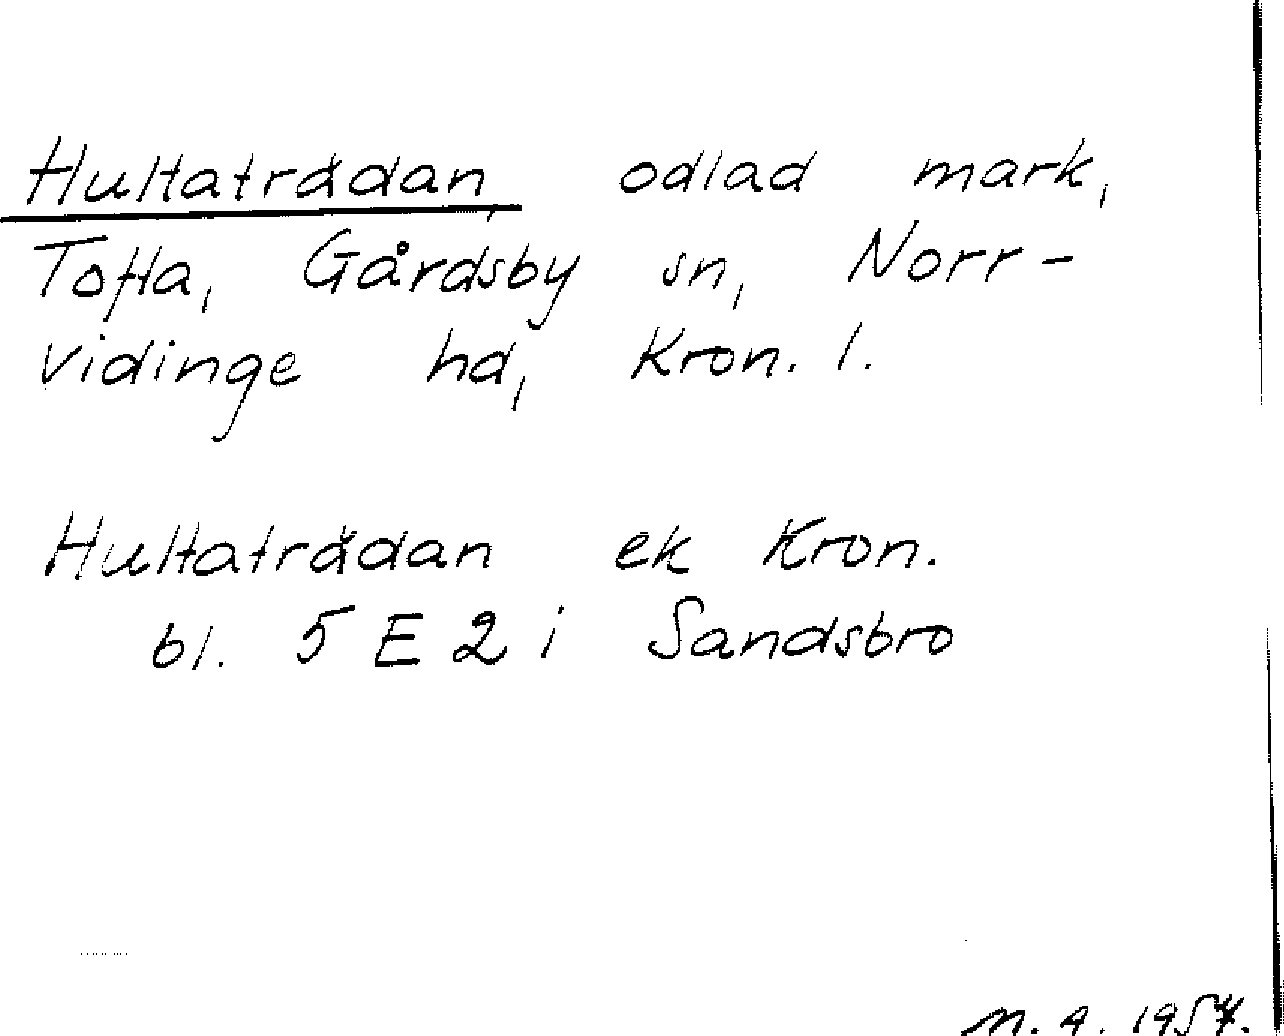 Hultaträdan, odlad mark,
Tofta, Gårdsby sn, Norr-
vidinge hd, Kron. l.
Hultaträdan ek Kron.
bl. 5 E 2 i Sandsbro